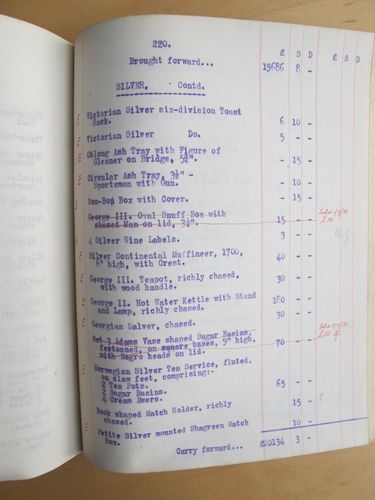 220.
£ S D £ S D
Brought forward... 19686 8 -
SILVER. Contd.
E Victorian Silver six-division Toast
Rack. 6 10 -
E Victorian Silver Do. 5 - -
E Oblong Ash Tray with Figure of
Gleaner on Bridge, 5¼". - 15 -
E Circular Ash Tray, 3½" -
Sportsman with Gun. - 10 -
E Bon-Bon Box with Cover. - 15 -
George III. Oval Snuff Box with
chased Man on lid, 3¼". 15 - -
E 4 Silver Wine Labels. 3 - -
E Silver Continental Muffineer, 1700,
6" high, with Crest. 40 - -
E George III. Teapot, richly chased,
with wood handle. 30 - -
E George II. Hot Water Kettle with Stand
and Lamp, richly chased. 180 - -
E Georgian Salver, chased. 30 - -
Set 3 Adams Vase shaped Sugar Basins,
festooned, on square bases, 9" high,
with Negro heads on lid. 70 - -
E Norwegian Silver Tea Service, fluted,
on claw feet, comprising:-
2 Tea Pots.
2 Sugar Basins.
4 Cream Ewers. 65 - -
Book shaped Match Holder, richly
chased. 15 -
E Petite Silver mounted Shagreen Match
Box. 10 -
Carry forward... 20134 3 -